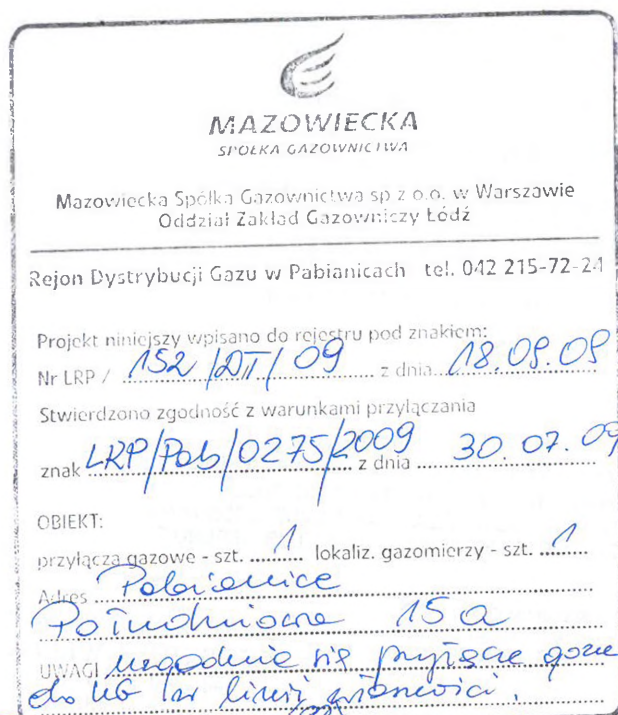 MAZOWIECKA
SPÓŁKA GAZOWNICTWA
Mazowiecka Spółka Gazownictwa sp z o.o. w Warszawie
Oddział Zakład Gazowniczy Łódź
Rejon Dystrybucji Gazu w Pabianicach tel. 042 215-72-24
Projekt niniejszy wpisano do rejestru pod znakiem:
Nr LRP / 152/DT/09 z dnia 18.09.09
Stwierdzono zgodność z warunkami przyłączania
znak LRP/Pab/0275/2009 z dnia 30.07.09
OBIEKT:
przyłącza gazowe - szt. 1 lokaliz. gazomierzy - szt. 1
Adres Pabianice
Południowa 15a
UWAGI uzgodnia się przyłącze gazu
do linii własności.